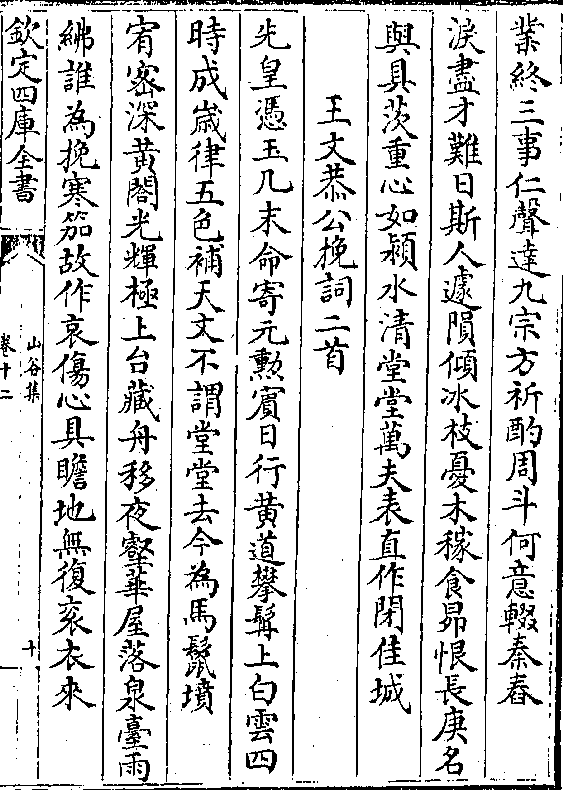 業終三事仁聲達九宗方祈酌周斗何意輟秦舂
淚盡才難日斯人遽隕傾冰枝憂木稼食昴恨長庚名
與具茨重心如潁水清堂堂萬夫表直作閉佳城
王文恭公挽詞二首
先皇憑玉几末命寄元勲賔日行黄道攀髯上白雲四
時成嵗律五色補天文不謂堂堂去今為馬鬛墳
宥宻深黄閣光輝極上台藏舟移夜壑華屋落泉臺雨
紼誰為挽寒笳故作哀傷心具瞻地無復衮衣來
欽定四庫全書
山谷集
卷十二
十